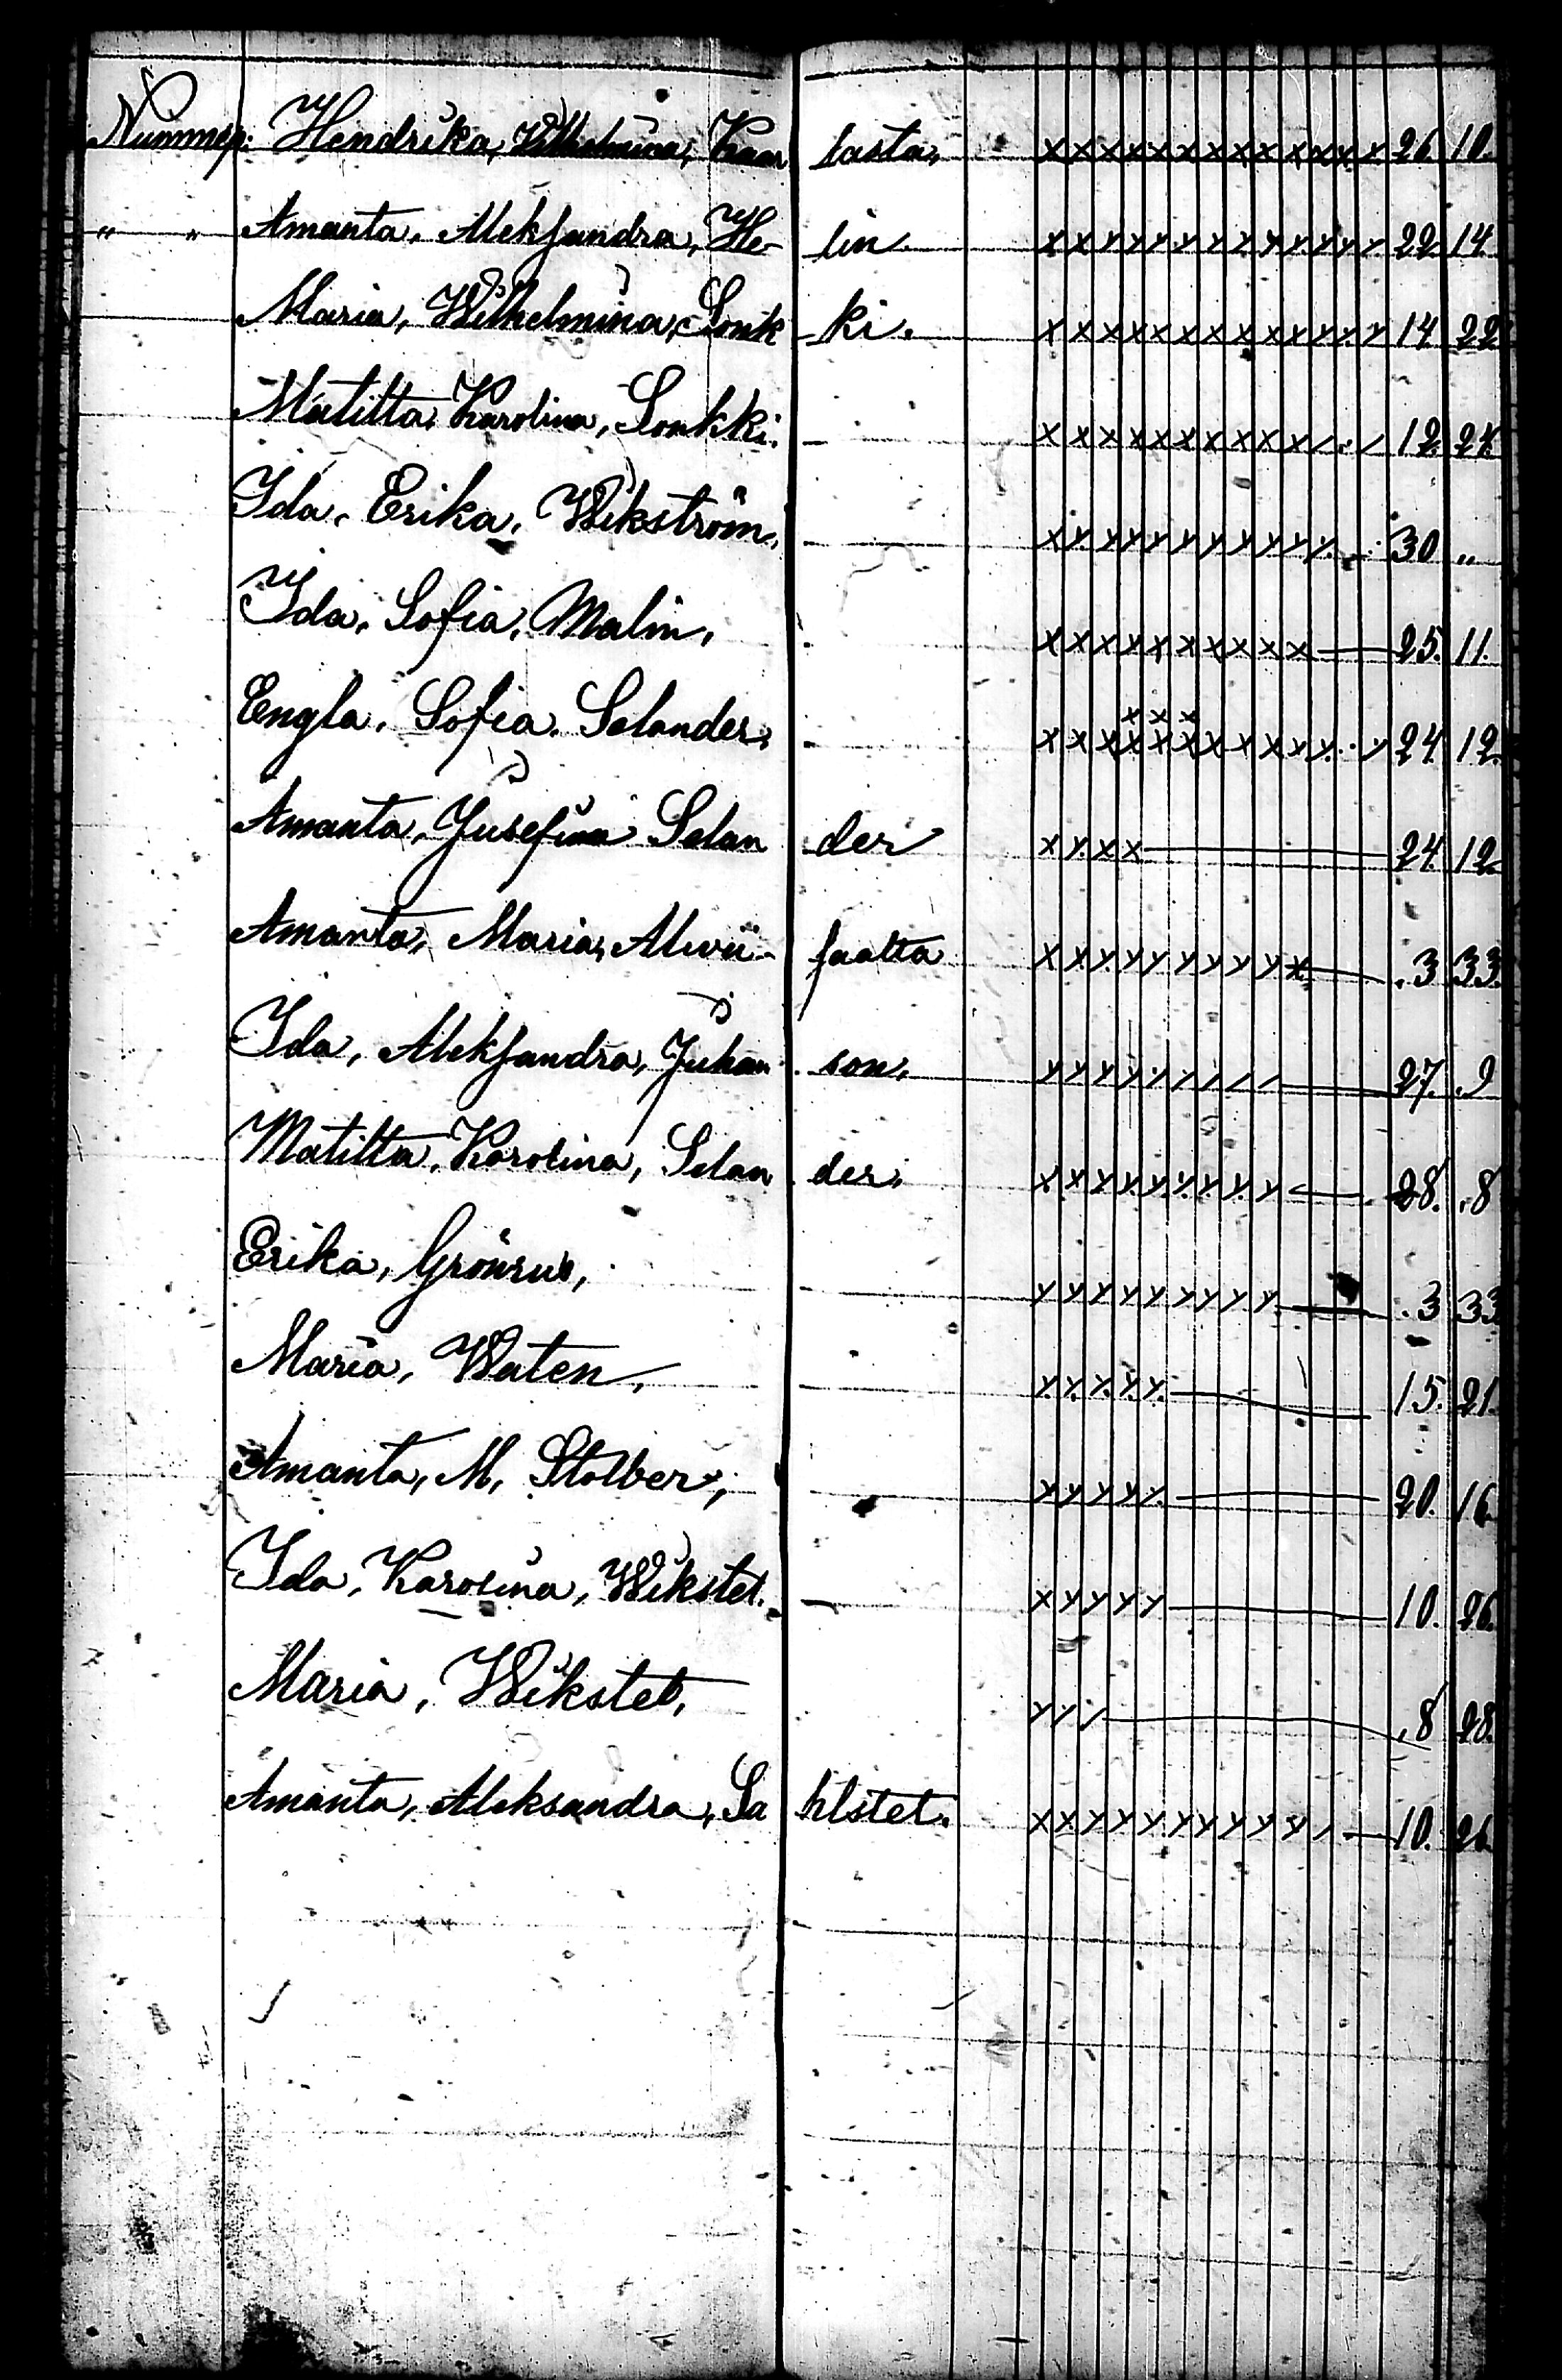 Nummer: Hendrika, Wilhelmina, Kaar lasta, x x x x x x x x x x x x x 26 10.
" " Amanta, Aleksandra, He- lin x x y y y y y y y y y y y 22. 14.
Maria, Wilhelmina, Lonk ki. x x x x x x x x x x y y y 14 22
Matilta, Karolina, Lonkki. x x x x x x x x x x / / / 12.
Ida, Erika, Wikström, x y y y y y y y y y y 30 "
Ida, Sofia, Malin, x x x x x x x x x x 25. 11.
Engla, Sofia, Selander, x x x x x x x x x x y y y 24 12.
Amanta, Jusefina Selan der x y x x 24. 12
Amanta, Maria, Alwii- saalta x x y y y y y y y x . 3 33.
Ida, Aleksandra, Juhan son, y y y y y / / / / / 27. . 9
Matilta, Karolina, Selan der, x x x y y y y y y 28. . 8
Erika, y y y y y y y y y . 3 33
Maria, Waten, y y y y y 15. 21.
Amanta, M, Stolber, y y y y y 20. 16
Ida, Karolina, Wikstet. x y y y y 10. 26.
Maria, Wikstet, y y / . 8 28.
Amanta, Aleksandra, Sa hlstet. x x y y y y y y y y / 10. 26